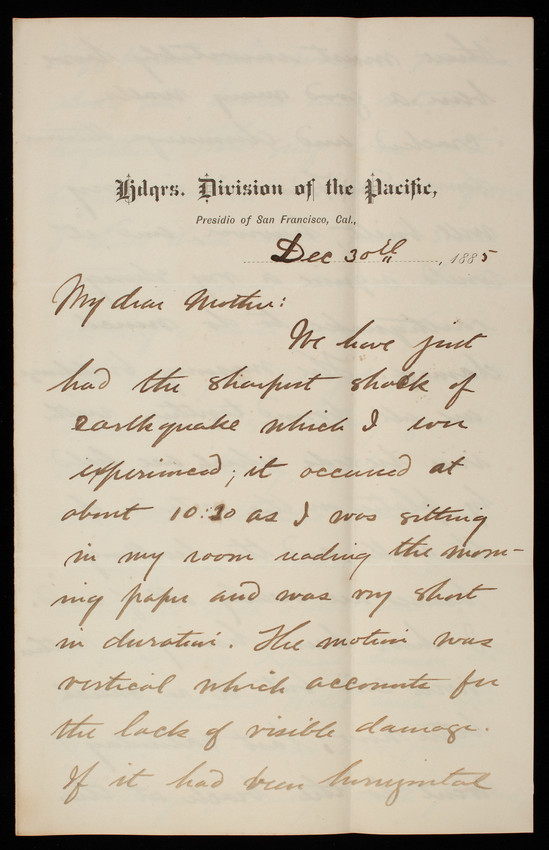 Hdqrs. Division of the Pacific,
Presidio of San Francisco, Cal.,
Dec 30th, 1885
My dear Mother:
We have just
had the sharpest shock of
earthquake which I ever
experienced; it occured at
about 10:20 as I was sitting
in my room reading the morn-
ing paper and was very short
in duration. The motion was
vertical which accounts for
the lack of visible damage.
If it had been horizontal